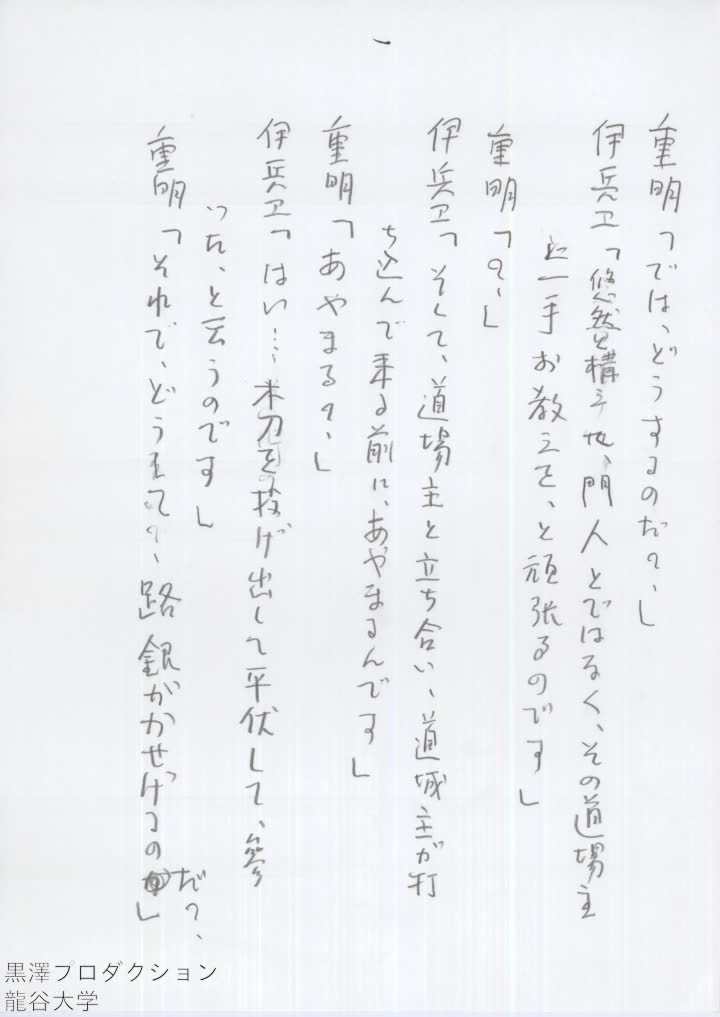 一
重明「では、どうするのだ?、」
伊兵ヱ「悠然と構ヱせ、門人とではなく、その道場主
に一手お教ヱを、と頑張るのです」
重明「?、」
伊兵ヱ「そして、道場主と立ち合い、道城主が打
ち込んで来る前に、あやまるんです」
重明「あやまる?、」
伊兵ヱ「はい…木刀を投げ出して平伏して、参
った、と云うのです」
重明「それで、どうして?、路銀がかせげるの
だ?、」
黒澤プロダクション
龍谷大学